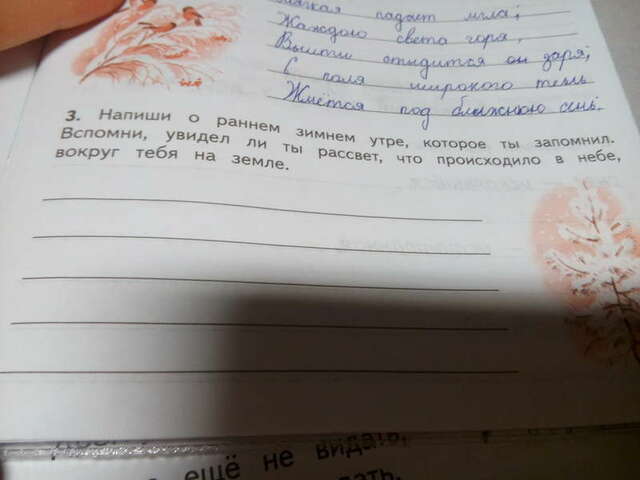 мягкая падает мгла;
Жаждою света горя,
Выйти стыдится он заря;
С поля широкого тень
Жмётся под ближнюю сень.
3. Напиши о раннем зимнем утре, которое ты запомнил.
Вспомни, увидел ли ты рассвет, что происходило в небе,
вокруг тебя на земле.
ещё не видать,